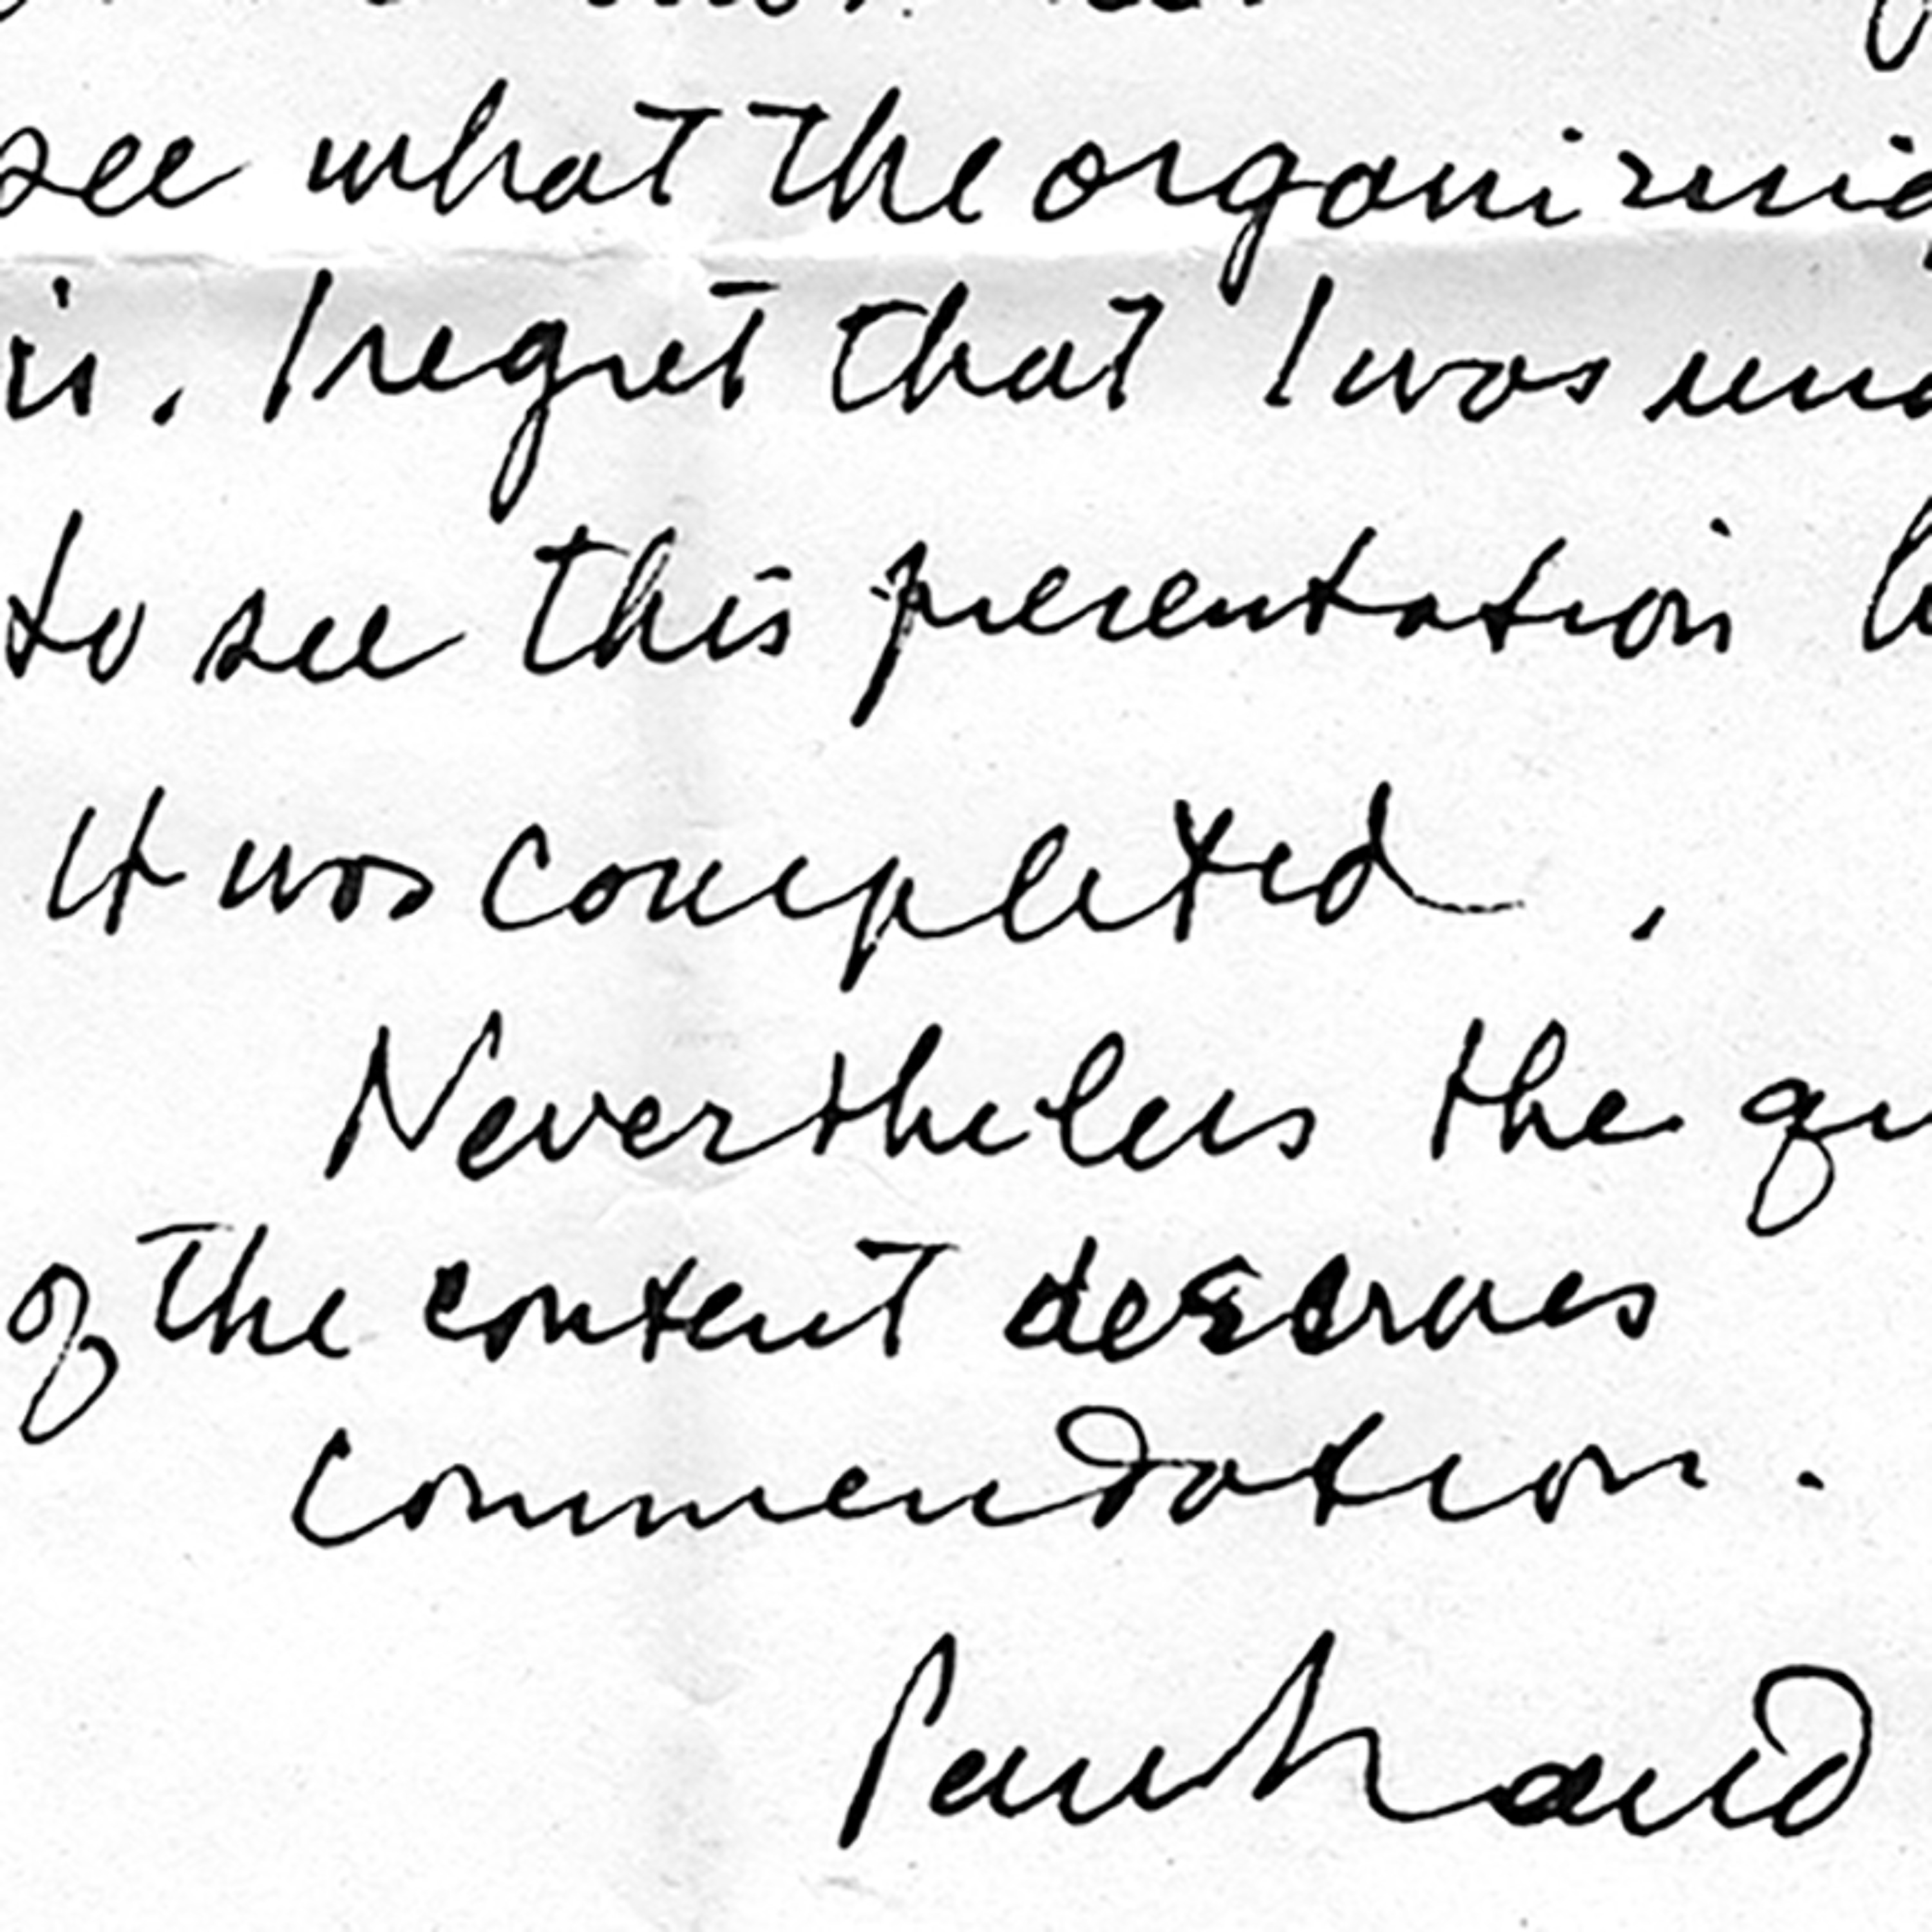 see what the organizing
is. I regret that I was una
to see this presentation be
it was completed.
Nevertheless the qu
of the content deserves
commendation.
Paul Rand